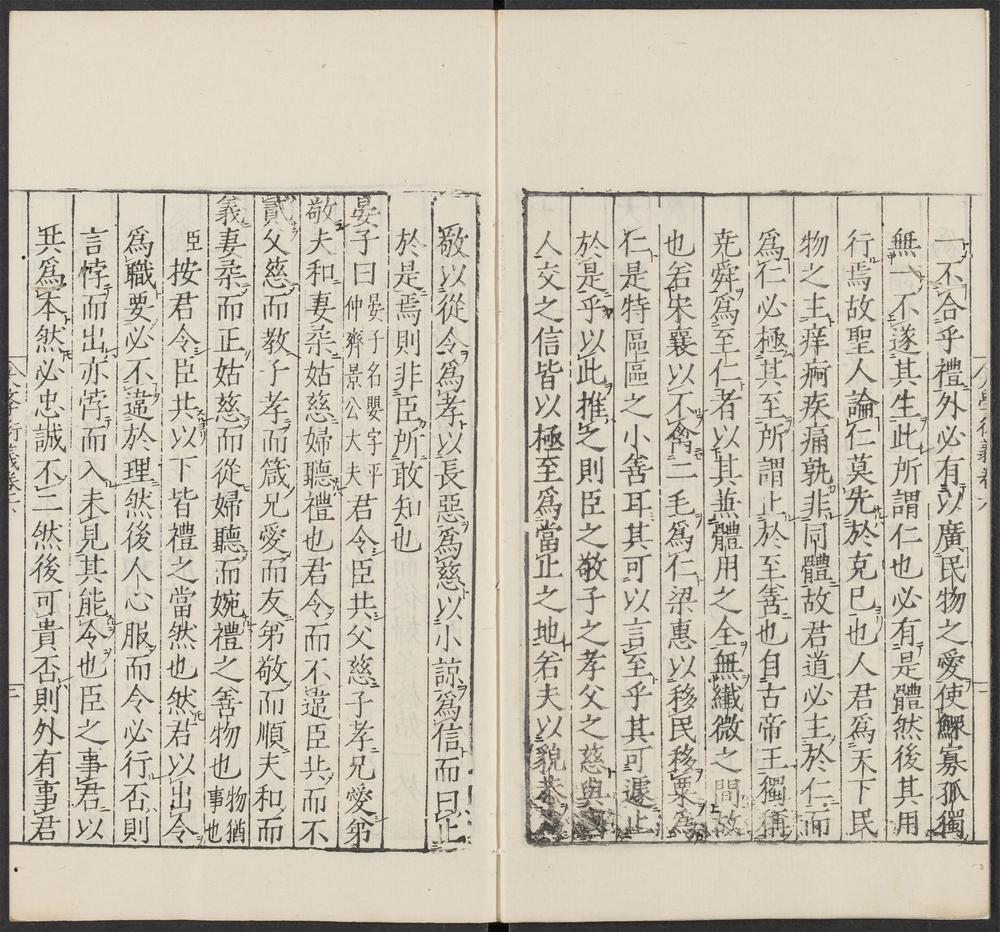 一不合乎禮外必有以廣民物之愛使鰥寡孤獨
無一不遂其生此所謂仁也必有是體然後其用
行焉故聖人論仁莫先於克己也人君爲天下民
物之主痒疴疾痛孰非同體故君道必主於仁而
爲仁必極其至所謂止於至善也自古帝王獨稱
堯舜爲至仁者以其兼體用之全無纖微之間故
也若宋襄以不禽二毛爲仁梁惠以移民移粟爲
仁是特區區之小善耳其可以言至乎其可遽止
於是乎以此推之則臣之敬子之孝父之慈與
人交之信皆以極至爲當止之地若夫以貌恭爲
敬以從令爲孝以長惡爲慈以小諒爲信而曰止
於是焉則非臣所敢知也
晏子曰晏子名嬰字平仲齊景公大夫君令臣共父慈子孝兄愛弟
敬夫和妻柔姑慈婦聽禮也君令而不違臣共而不
貳父慈而教子孝而箴兄愛而友弟敬而順夫和而
義妻柔而正姑慈而從婦聽而婉禮之善物也物猶事也
臣按君令臣共以下皆禮之當然也然君以出令
爲職要必不違於理然後人心服而令必行否則
言悖而出亦悖而入未見其能令也臣之事君以
共爲本然必忠誠不二然後可貴否則外有事君